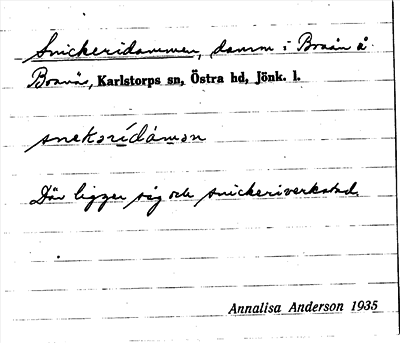 Snickeridammen, damm i Braån å
Bravås, Karlstorps sn, Östra hd, Jönk. l.
snekərídám̀ən
Där ligger såg och snickeriverkstad.
Annalisa Anderson 1935